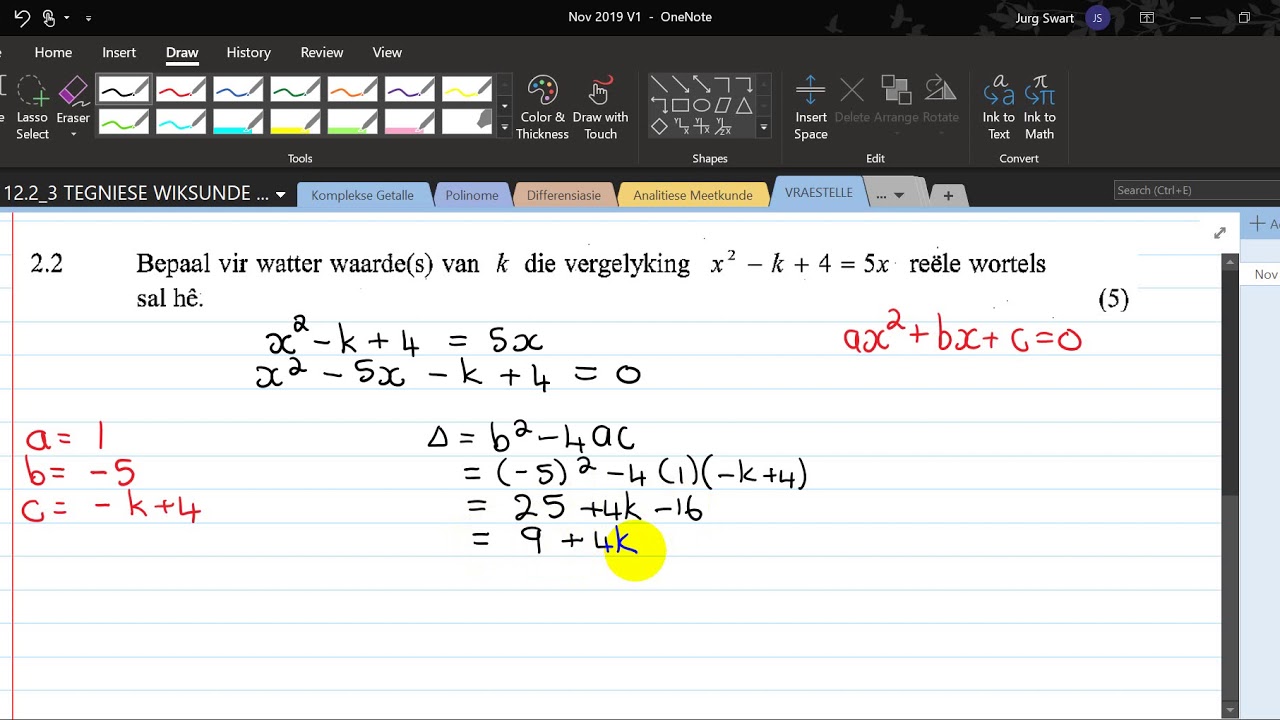 Nov 2019 V1 - OneNote
Jurg Swart
JS
Home Insert Draw History Review View
Lasso Select
Eraser
Color & Thickness
Draw with Touch
Insert Space
Delete Arrange Rotate
Ink to Text
Ink to Math
Tools
Shapes
Edit
Convert
12.2_3 TEGNIESE WIKSUNDE ...
Komplekse Getalle
Polinome
Differensiasie
Analitiese Meetkunde
VRAESTELLE
...
+
Search (Ctrl+E)
Nov
2.2 Bepaal vir watter waarde(s) van k die vergelyking x² − k + 4 = 5x reële wortels
sal hê. (5)
x² − k + 4 = 5x
ax² + bx + c = 0
x² − 5x − k + 4 = 0
a = 1
b = −5
c = −k + 4
Δ = b² − 4ac
= (−5)² − 4(1)(−k+4)
= 25 + 4k − 16
= 9 + 4k